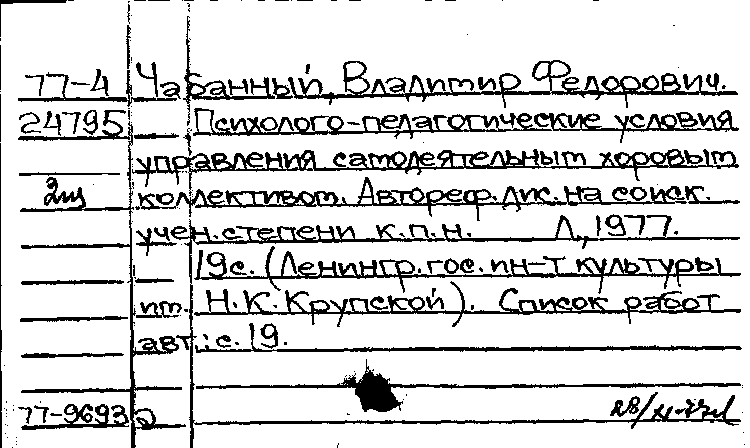 77-4 Чабанный, Владимир Федорович.
24795 Психолого-педагогические условия
управления самодеятельным хоровым
коллективом. Автореф. дис. на соиск.
учен. степени к.п.н. Л., 1977.
19с. (Ленингр. гос. ин-т культуры
им. Н.К. Крупской). Список работ
авт.: с. 19.
77-9693